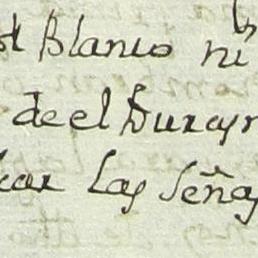 Blanco ni
de el Duraz
car las Señas